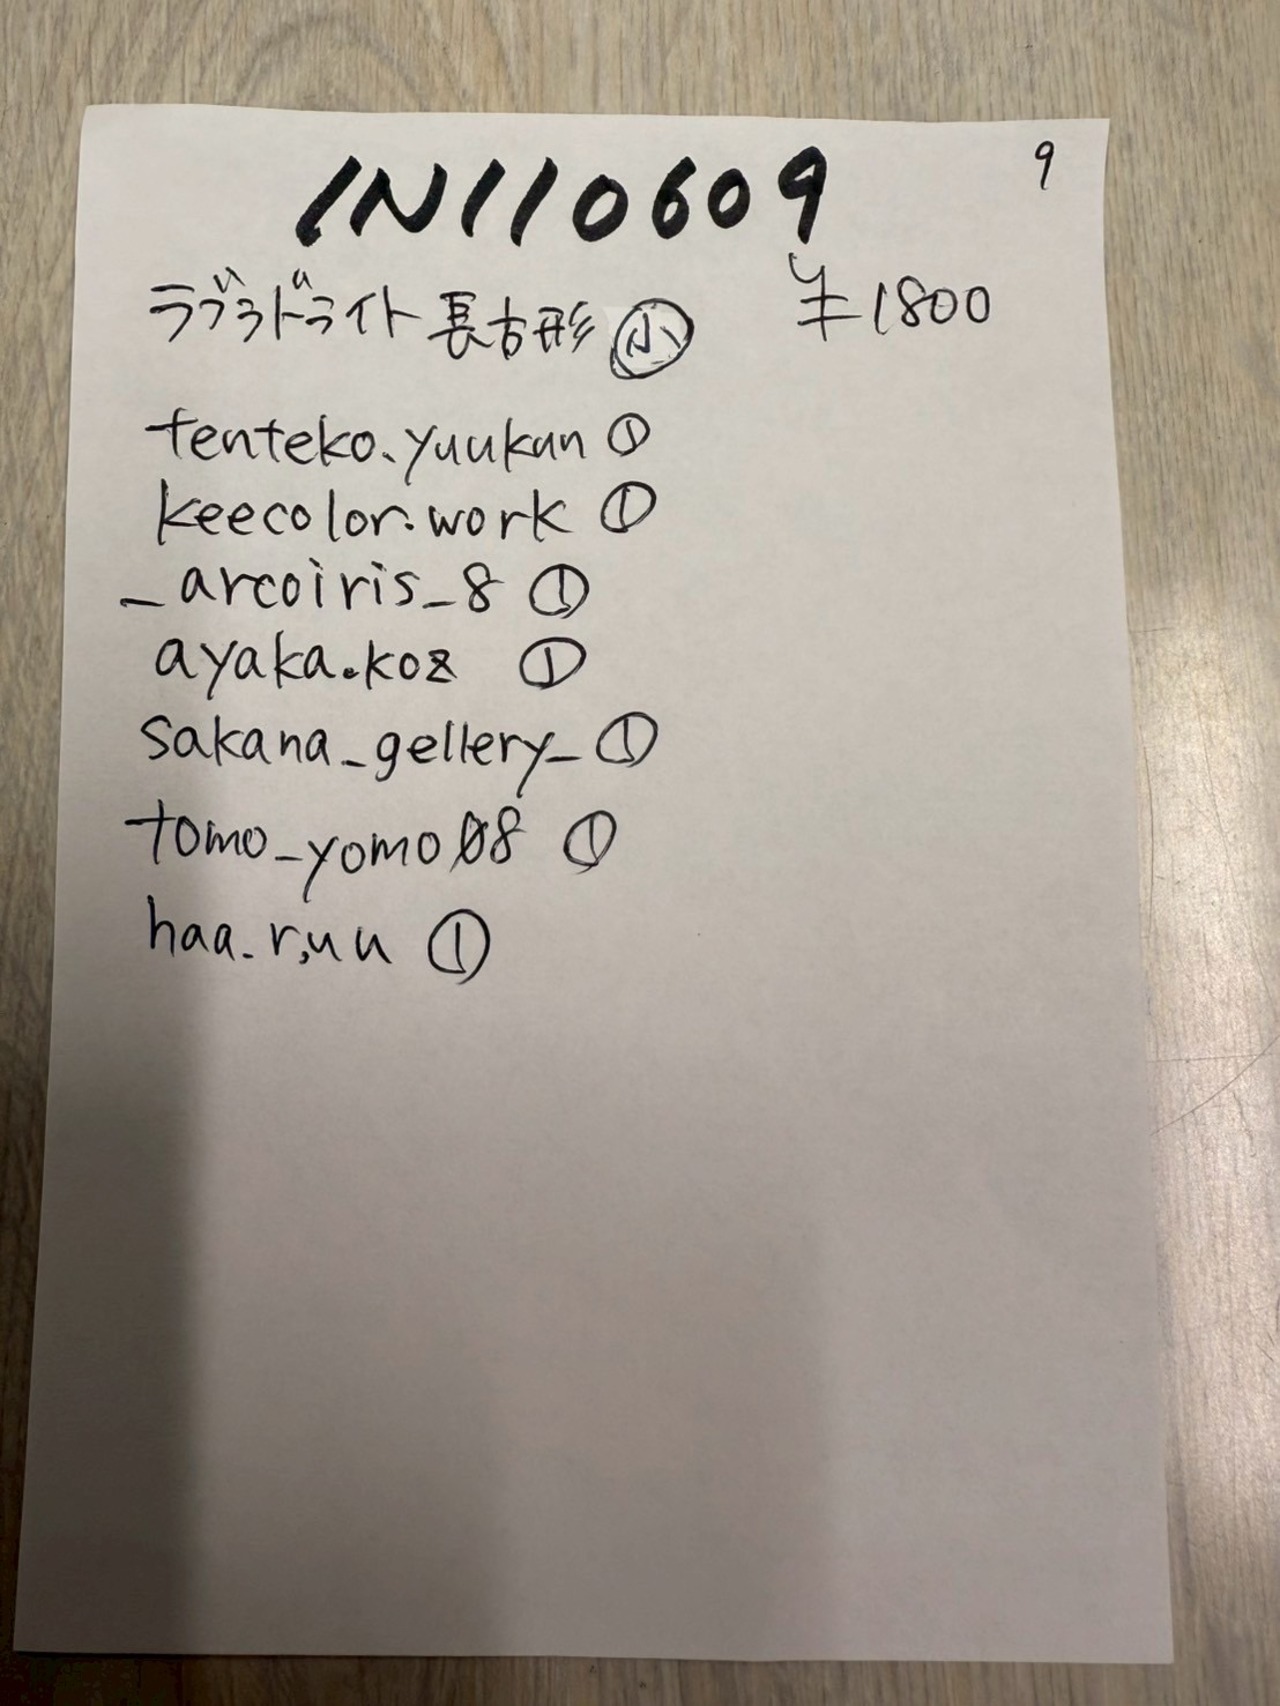 IN110609
9
ラブラドライト 長方形 ㊙小 ¥1800
tenteko.yuukun ①
keecolor.work ①
_arcoiris_8 ①
ayaka.koz ①
sakana_gellery_ ①
tomo_yomo08 ①
haa.r,uu ①